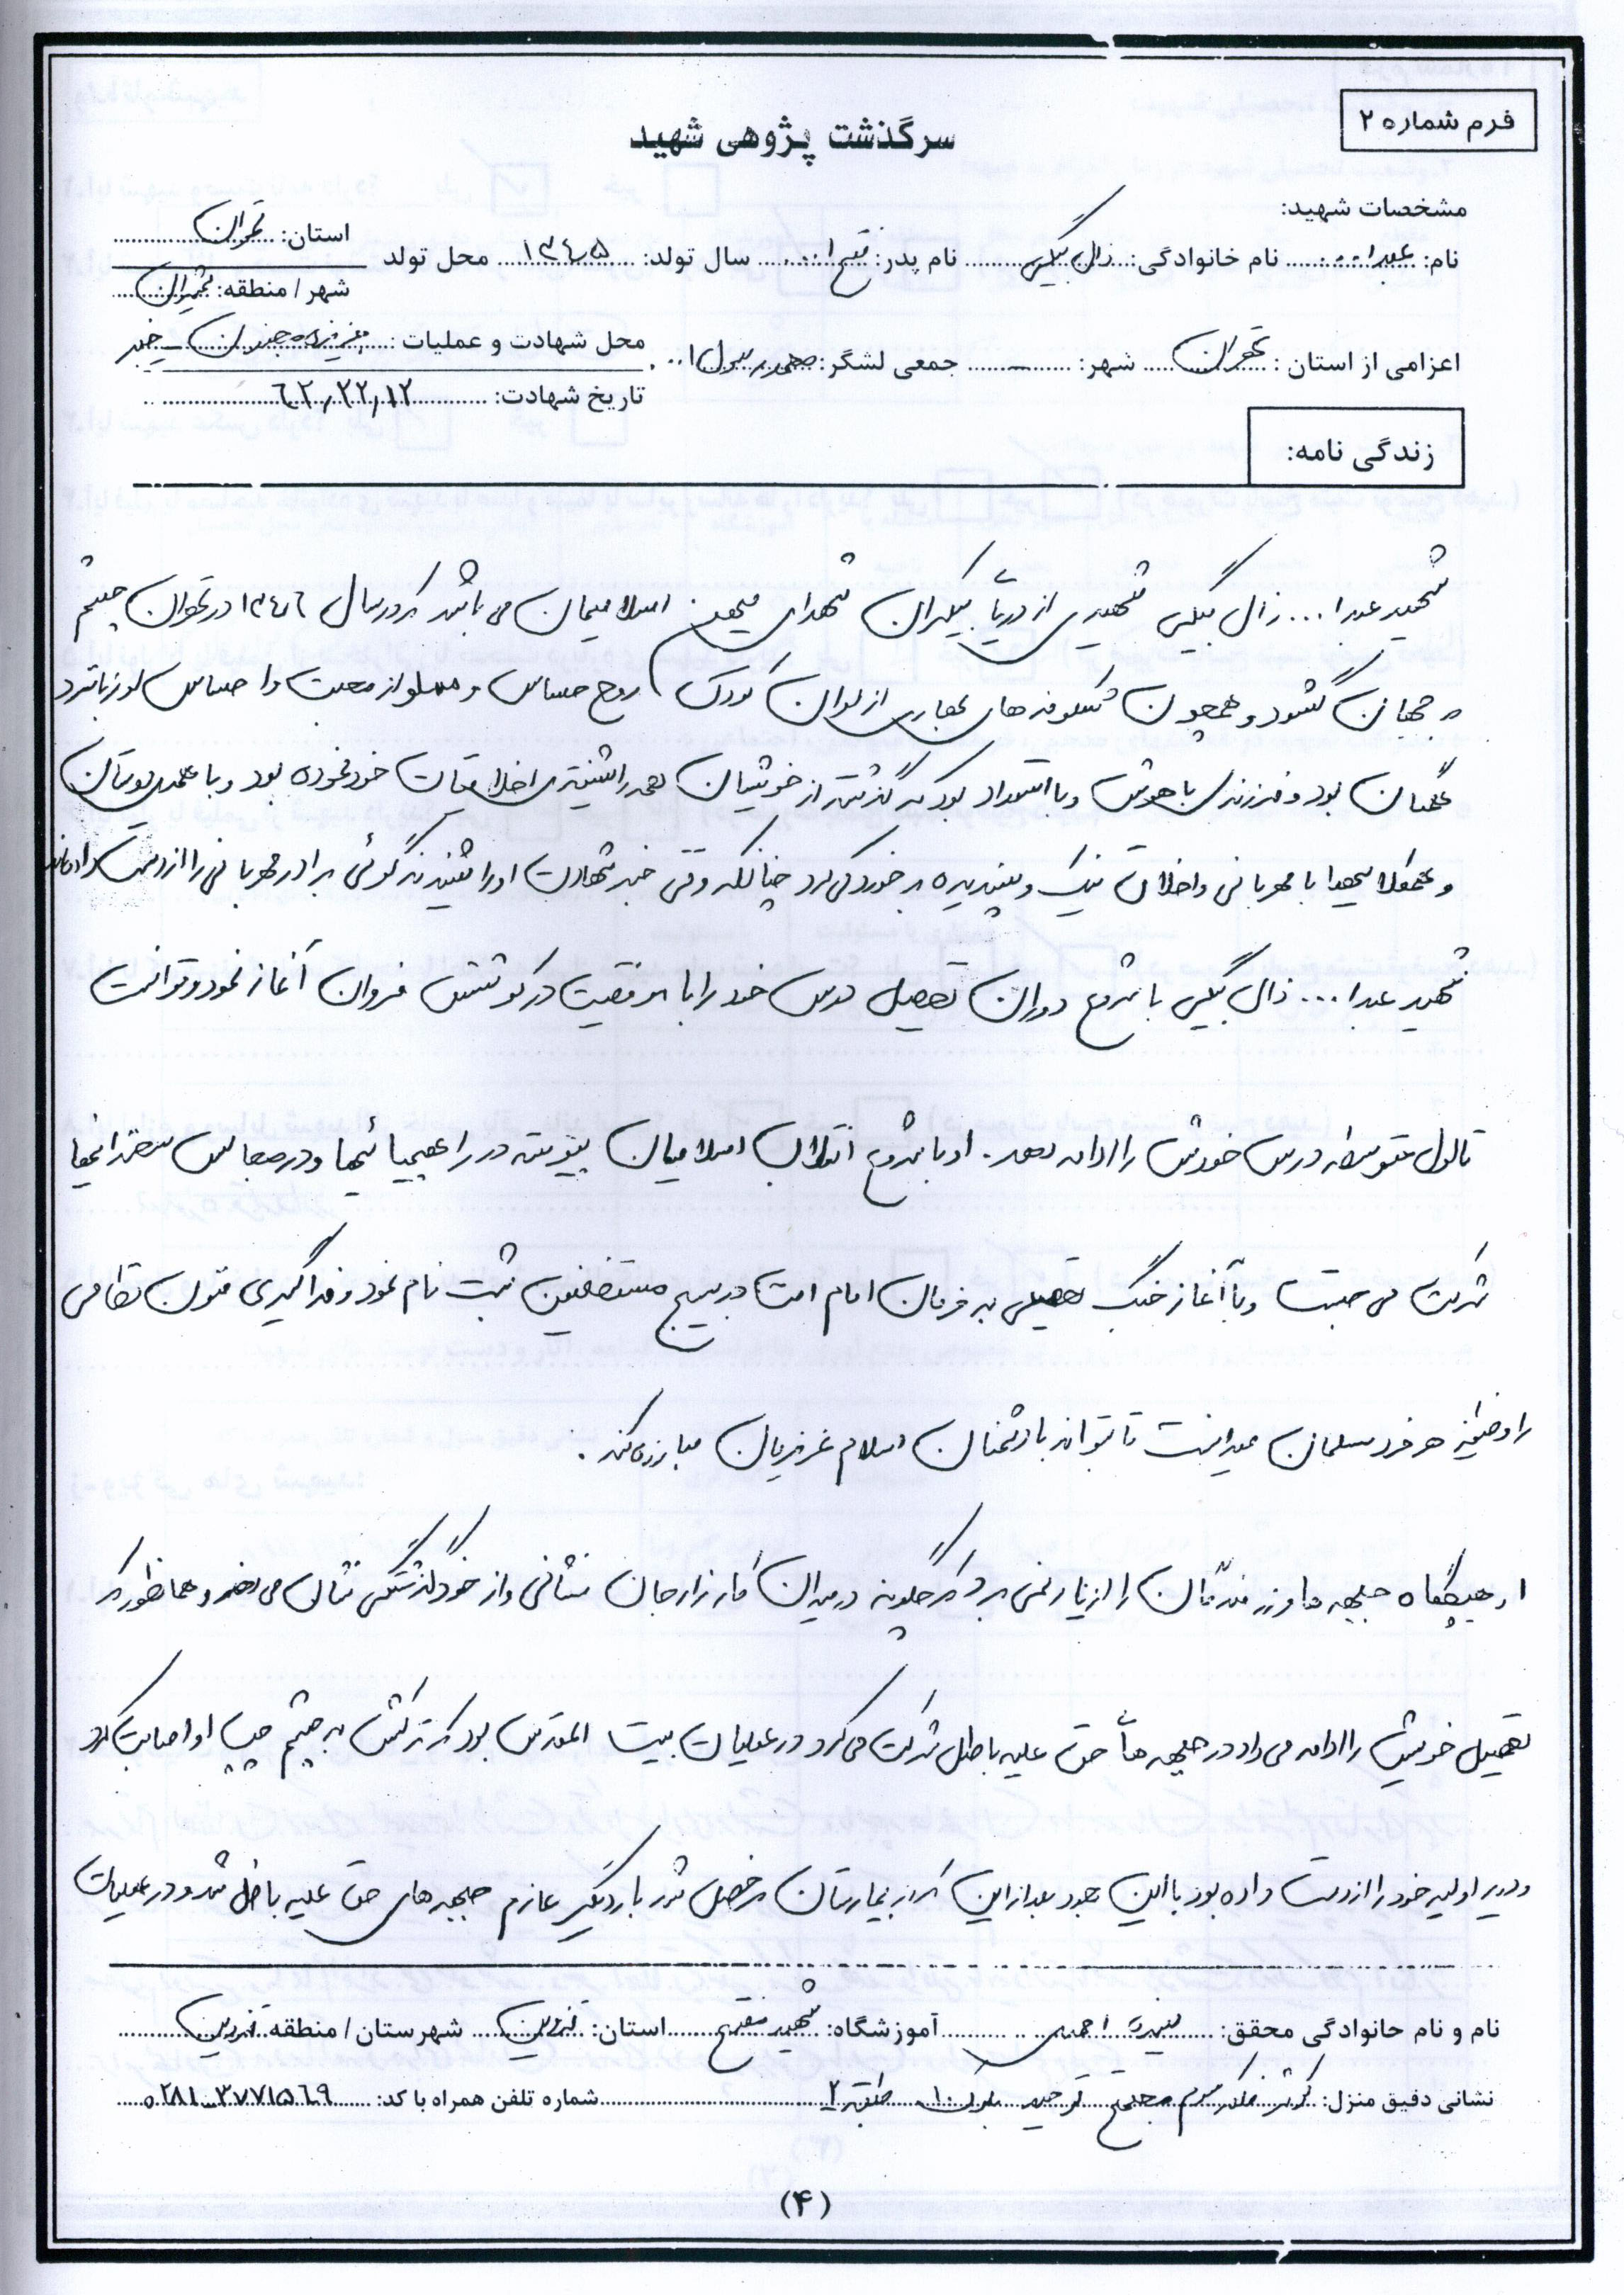 فرم شماره ۲
سرگذشت پژوهی شهید
مشخصات شهید:
نام: عبدا... نام خانوادگی: زال بیگی نام پدر: فتح ا... سال تولد: ۱۳۴۵ محل تولد استان: تهران
شهر / منطقه: تهران
اعزامی از استان: تهران شهر: ــ جمعی لشگر: محمد رسول ا... محل شهادت و عملیات: جزیره مجنون - خیبر
تاریخ شهادت: ۶۲/۲۲/۱۲
زندگی نامه:
شهید عبدا... زال بیگی شهیدی از دریای بیکران شهدای میهن اسلامیمان می باشد که در سال ۱۳۴۶ در تهران چشم
به جهان گشود و همچون شکوفه های بهاری از اوان کودکی روح حساس و مملو از محبت و احساس او زبانزد
همگان بود و فرزندی با هوش و با استعداد بود که گذشته از خویشان همه را شیفته اخلاقیات خود نموده بود و با همه دوستان
و همکلاسیها با مهربانی و اخلاق نیک و پسندیده برخورد می کرد چنانکه وقتی خبر شهادت او را شنیدند گوئی برادر مهربانی را از دست داده اند
شهید عبدا... زال بیگی با شروع دوران تحصیل درس خود را با موفقیت در کوشش فروان آغاز نمود و توانست
تا اول متوسطه درس خودش را ادامه دهد. او با شروع انقلاب اسلامیمان پیوسته در راهپیمائیها و در مجالس سخنرانیها
شرکت می جست و با آغاز جنگ تحمیلی به فرمان امام امت در بسیج مستضعفین ثبت نام نمود و فراگیری فنون نظامی
را وظیفه هر فرد مسلمان میدانست تا بتواند با دشمنان اسلام عزیزمان مبارزه کند.
او هیچگاه جبهه ها و رزمندگان را از یاد نمی برد که چگونه در میدان کارزار جان فشانی و از خود گذشتگی نشان می دهند و همانطور که
تحصیل خویش را ادامه می داد در جبهه های حق علیه باطل شرکت می کرد در عملیات بیت المقدس بود که ترکش به چشم چپ او اصابت کرد
و دید اولیه خود را از دست داده بود با این وجود بعد از این که از بیمارستان مرخص شد بار دیگر عازم جبهه های حق علیه باطل شد و در عملیات
نام و نام خانوادگی محقق: احمدی آموزشگاه: شهید مفتح استان: قزوین شهرستان / منطقه قزوین
نشانی دقیق منزل: کوثر فلکه سوم مجتمع بلوک ۱۰ طبقه ۲ شماره تلفن همراه با کد: ۰۲۸۱-۳۷۷۱۵۶۹
(۴)